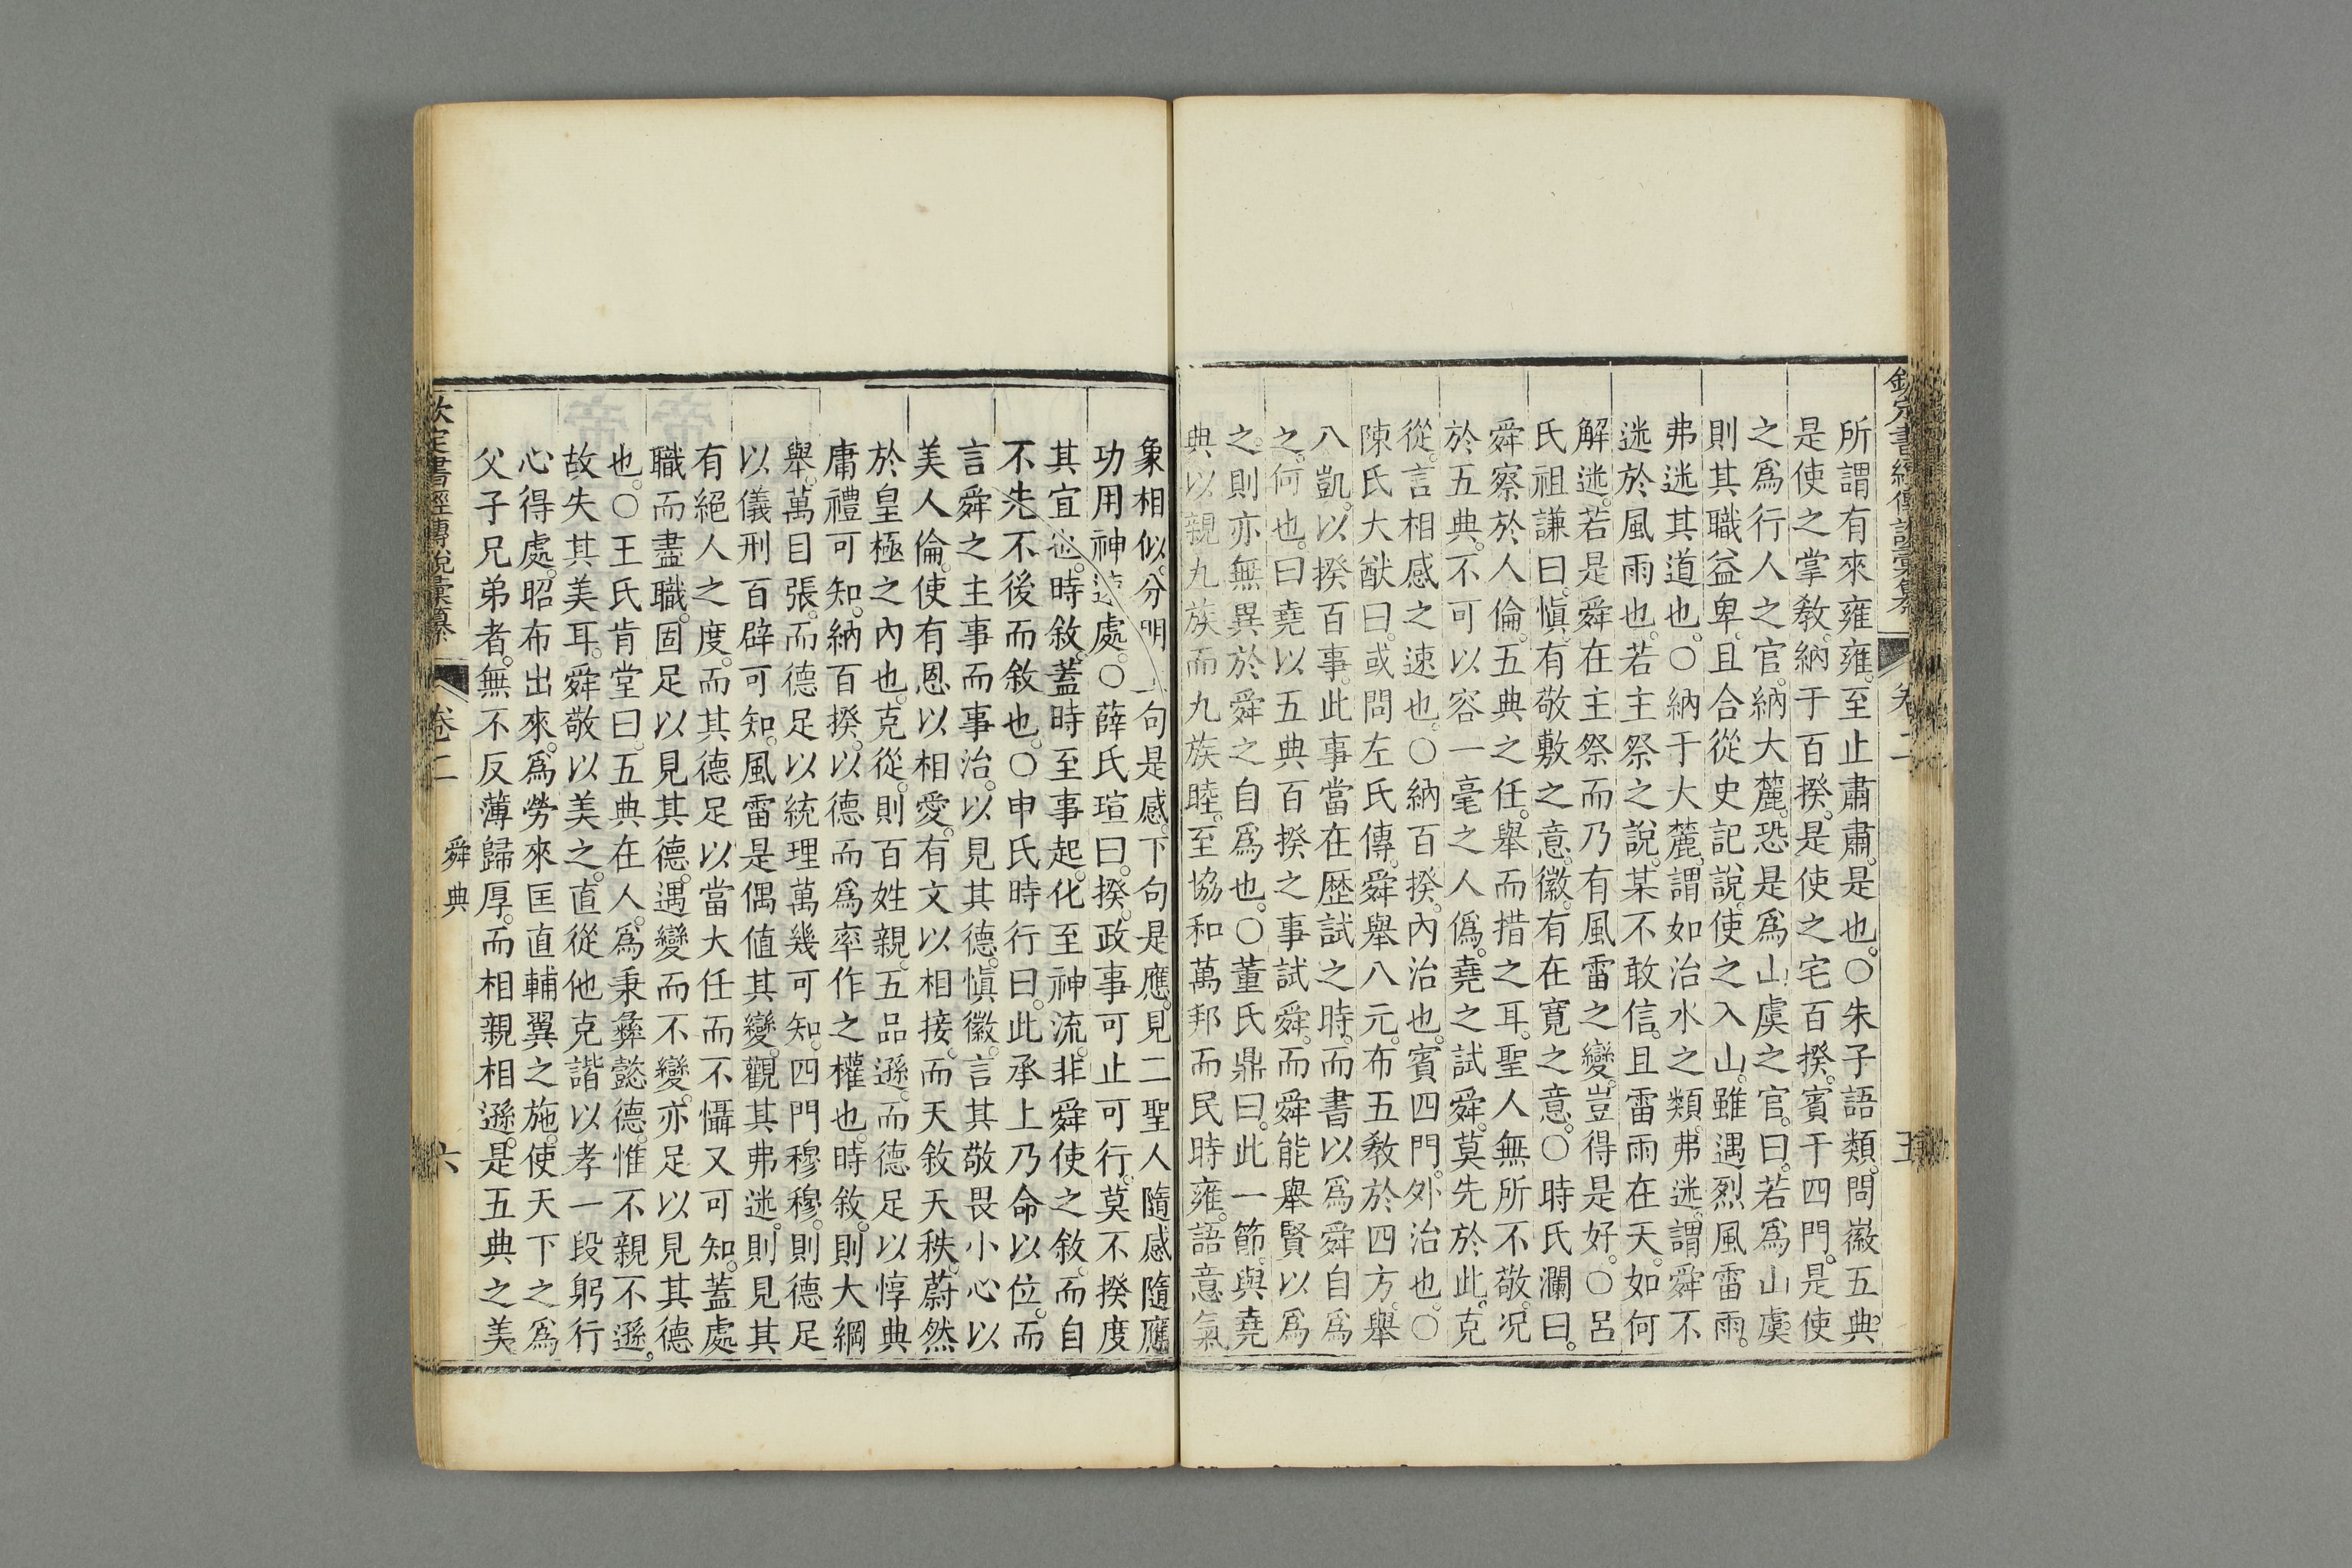 欽定書經傳說彙纂 卷二 五
所謂有來雍雍。至止肅肅。是也。○朱子語類。問徽五典。
是使之掌敎。納于百揆。是使之宅百揆。賓于四門。是使
之爲行人之官。納大麓。恐是爲山虞之官。曰。若爲山虞
則其職益卑。且合從史記說。使之入山。雖遇烈風雷雨。
弗迷其道也。○納于大麓。謂如治水之類。弗迷。謂舜不
迷於風雨也。若主祭之說。某不敢信。且雷雨在天。如何
解迷。若是舜在主祭而乃有風雷之變。豈得是好。○呂
氏祖謙曰。愼。有敬敷之意。徽。有在寬之意。○時氏瀾曰。
舜察於人倫。五典之任。舉而措之耳。聖人無所不敬。况
於五典。不可以容一毫之人僞。堯之試舜。莫先於此。克
從。言相感之速也。○納百揆。內治也。賓四門。外治也。○
陳氏大猷曰。或問左氏傳。舜舉八元。布五敎於四方。舉
八凱。以揆百事。此事當在歷試之時。而書以爲舜自爲
之。何也。曰。堯以五典百揆之事試舜。而舜能舉賢以爲
之。則亦無異於舜之自爲也。○董氏鼎曰。此一節。與堯
典以親九族而九族睦。至協和萬邦而民時雍。語意氣
象相似。分明上句是感。下句是應。見二聖人隨感隨應
功用神速處。○薛氏瑄曰。揆。政事可止可行。莫不揆度
其宜也。時敘。蓋時至事起。化至神流。非舜使之敘。而自
不先不後而敘也。○申氏時行曰。此承上乃命以位。而
言舜之主事而事治。以見其德。愼徽。言其敬畏小心以
美人倫。使有恩以相愛。有文以相接。而天敘天秩。蔚然
於皇極之內也。克從。則百姓親。五品遜。而德足以惇典
庸禮可知。納百揆。以德而爲率作之權也。時敘。則大綱
舉。萬目張。而德足以統理萬幾可知。四門穆穆。則德足
以儀刑百辟可知。風雷是偶值其變。觀其弗迷。則見其
有絕人之度。而其德足以當大任而不懾又可知。蓋處
職而盡職。固足以見其德。遇變而不變。亦足以見其德
也。○王氏肯堂曰。五典在人。爲秉彝懿德。惟不親不遜。
故失其美耳。舜敬以美之。直從他克諧以孝一段躬行
心得處。昭布出來。爲勞來匡直輔翼之施。使天下之爲
父子兄弟者。無不反薄歸厚。而相親相遜。是五典之美
欽定書經傳說彙纂 卷二 舜典 六